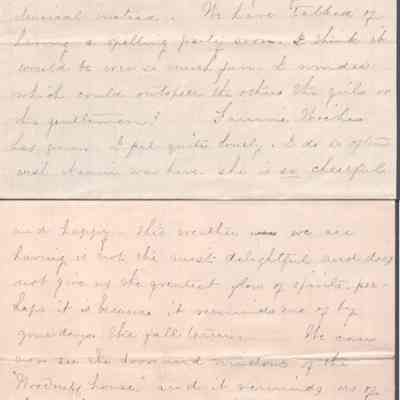 musical instead. We have talked of
having a spelling party soon. I think it
would be ever so much fun. I wonder
which could outspell the others the girls or
the gentlemen? Fannie
has gone. I feel quite lonely. I do so often
wish Nannie was here she is so cheerful
and happy. This weather we are
having is not the most delightful and does
not give us the greatest flow of spirits, per-
haps it is because it reminds one of by
gone days the fall
now see the doors and windows of the
"Woodruff house" and it reminds us of